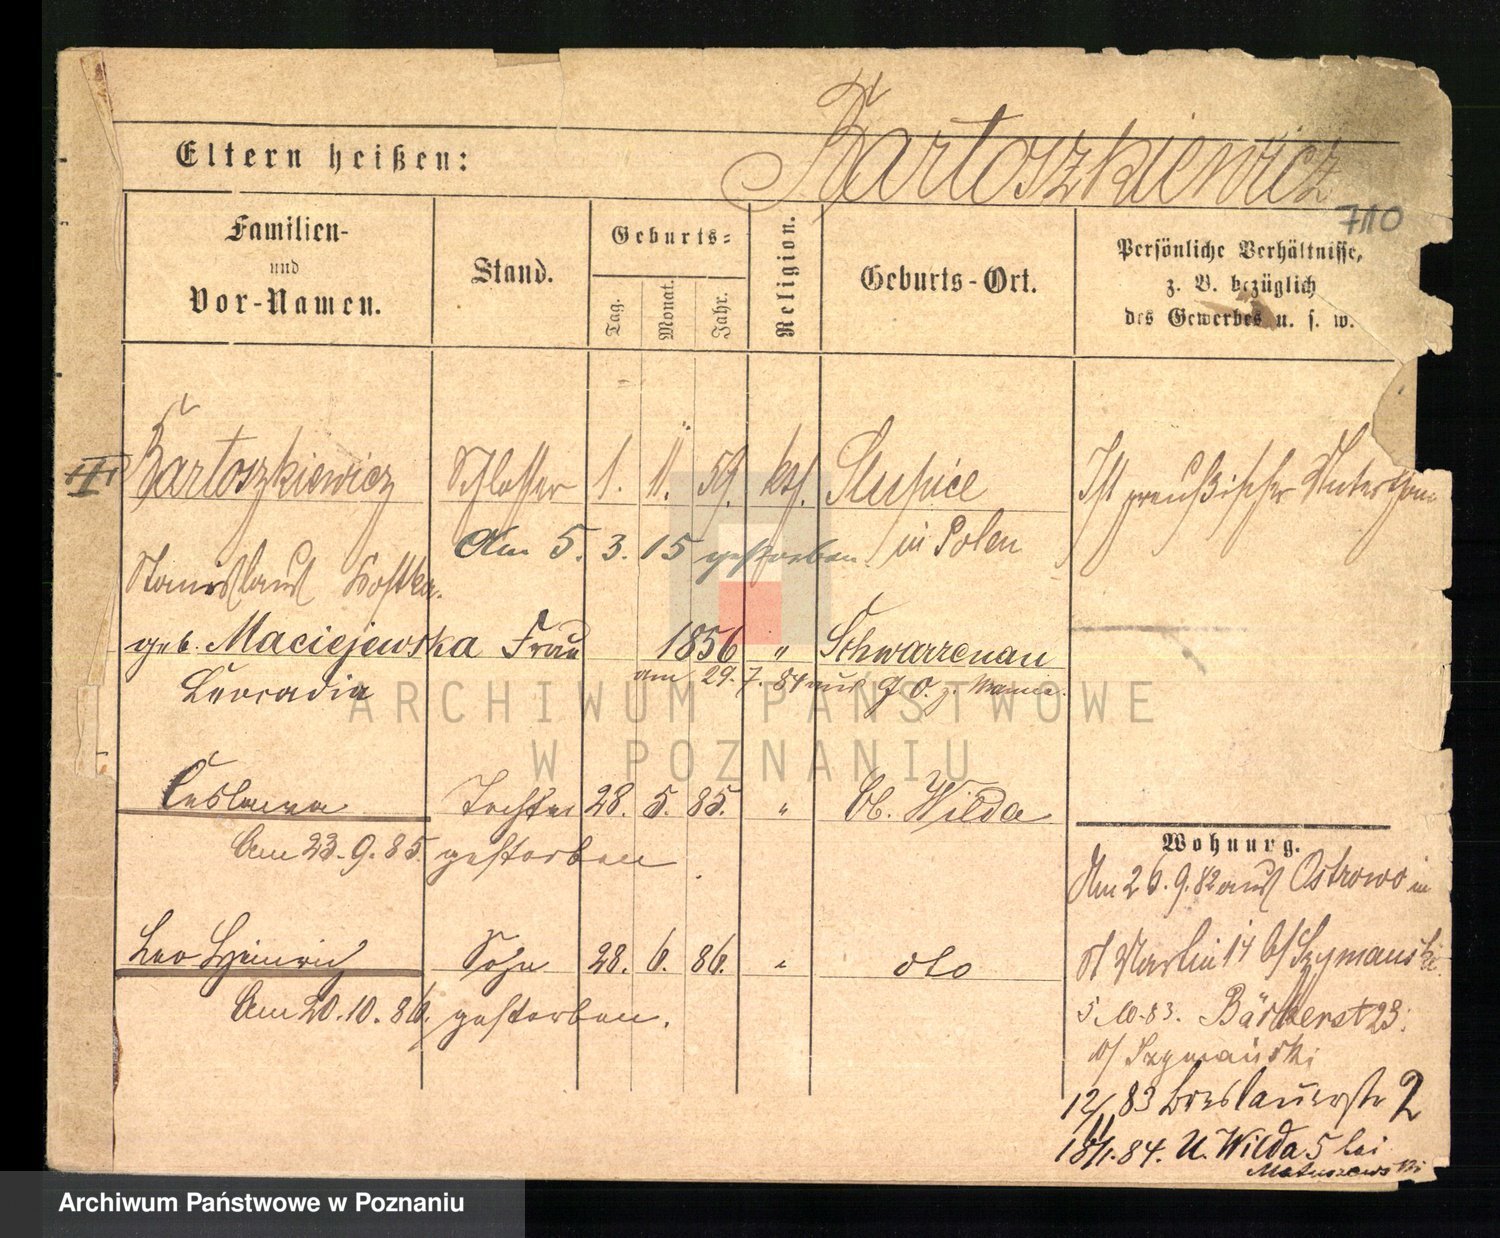 Bartoszkiewicz
Eltern heißen:
710
Familien-
und
Vor-Namen.
Stand.
Geburts-
Tag.
Monat.
Jahr.
Religion.
Geburts-Ort.
Persönliche Verhältnisse,
z. B. bezüglich
des Gewerbes u. s. w.
III Bartoszkiewicz Schlosser 1. 11. 59. kth. Slupice Ist preußischer
Am 5. 3. 15 gestorben. in Polen
Stanislaus Kostka.
geb. Maciejewska Frau 1856 " Schwarzenau
Leocadia am 29. 7. 84 aus
Ceslawa Tochter 28. 5. 85. " Ob. Wilda
Am 23. 9. 85. gestorben
Leo Heinrich Sohn 28. 6. 86. " dto
Am 20. 10. 86. gestorben.
Wohnung.
Am 26. 9. 82 aus Ostrowo in
St Martin 14 b/ Szymanski
5. 10. 83. 23.
b/ Szymański
12/11 83 Breslauerstr 2
18/1. 84. U. Wilda 5 bei
Matuszewski
ARCHIWUM PAŃSTWOWE
W POZNANIU
Archiwum Państwowe w Poznaniu